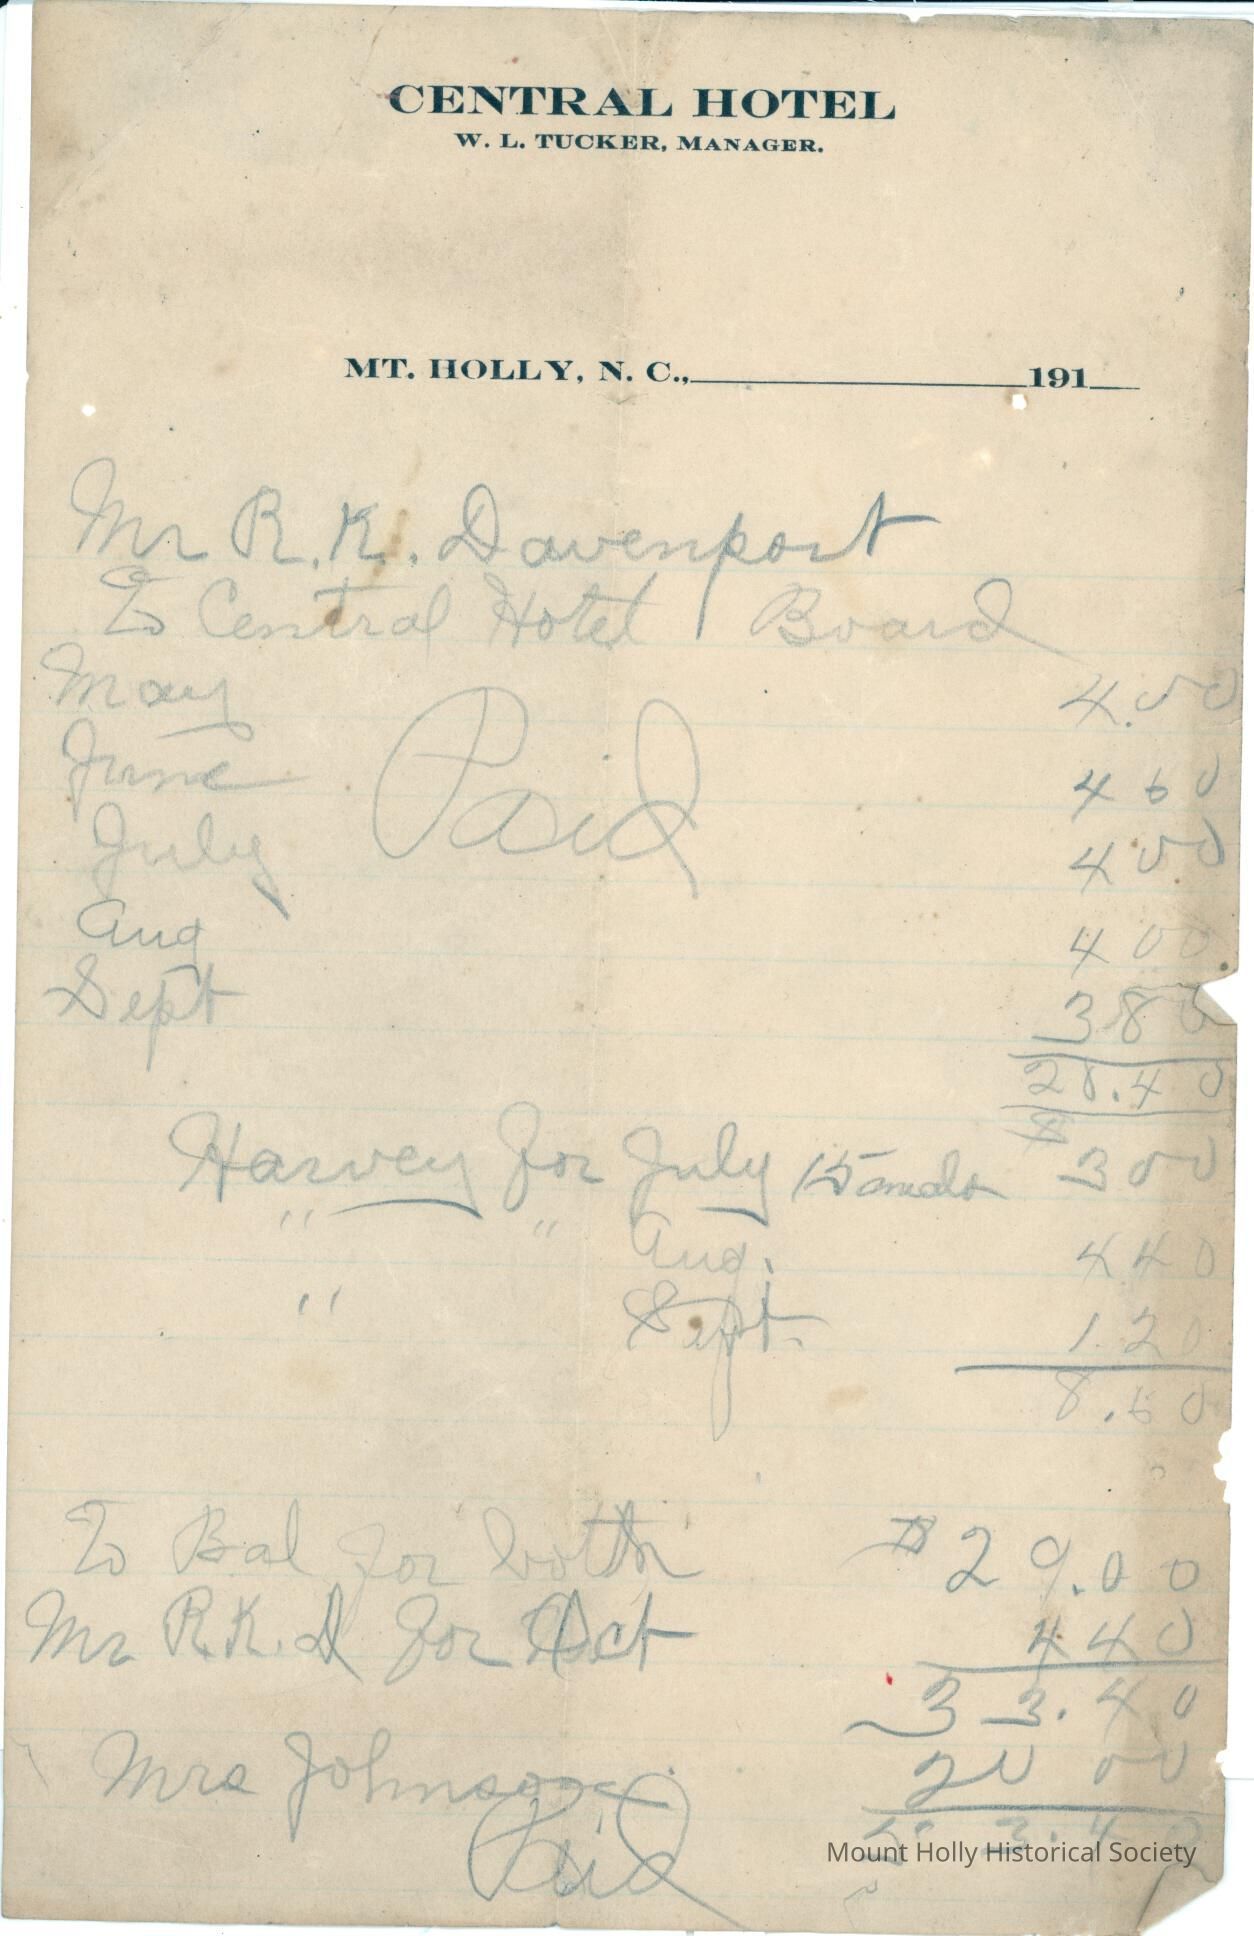 CENTRAL HOTEL
W. L. TUCKER, MANAGER.
MT. HOLLY, N. C., 191
Mr R. K. Davenport
To Central Hotel Board
May 4.00
June 4 60
July 4 00
Aug 4 00
Sept 3 80
Paid
20.40
Harvey for July 15 meals $ 3 00
" " Aug. 4 40
" Sept. 1.20
8.60
To Bal for both $ 29.00
Mr R. K. D for Oct 4 40
33.40
Mrs Johnson 20 00
Paid
53.40
Mount Holly Historical Society